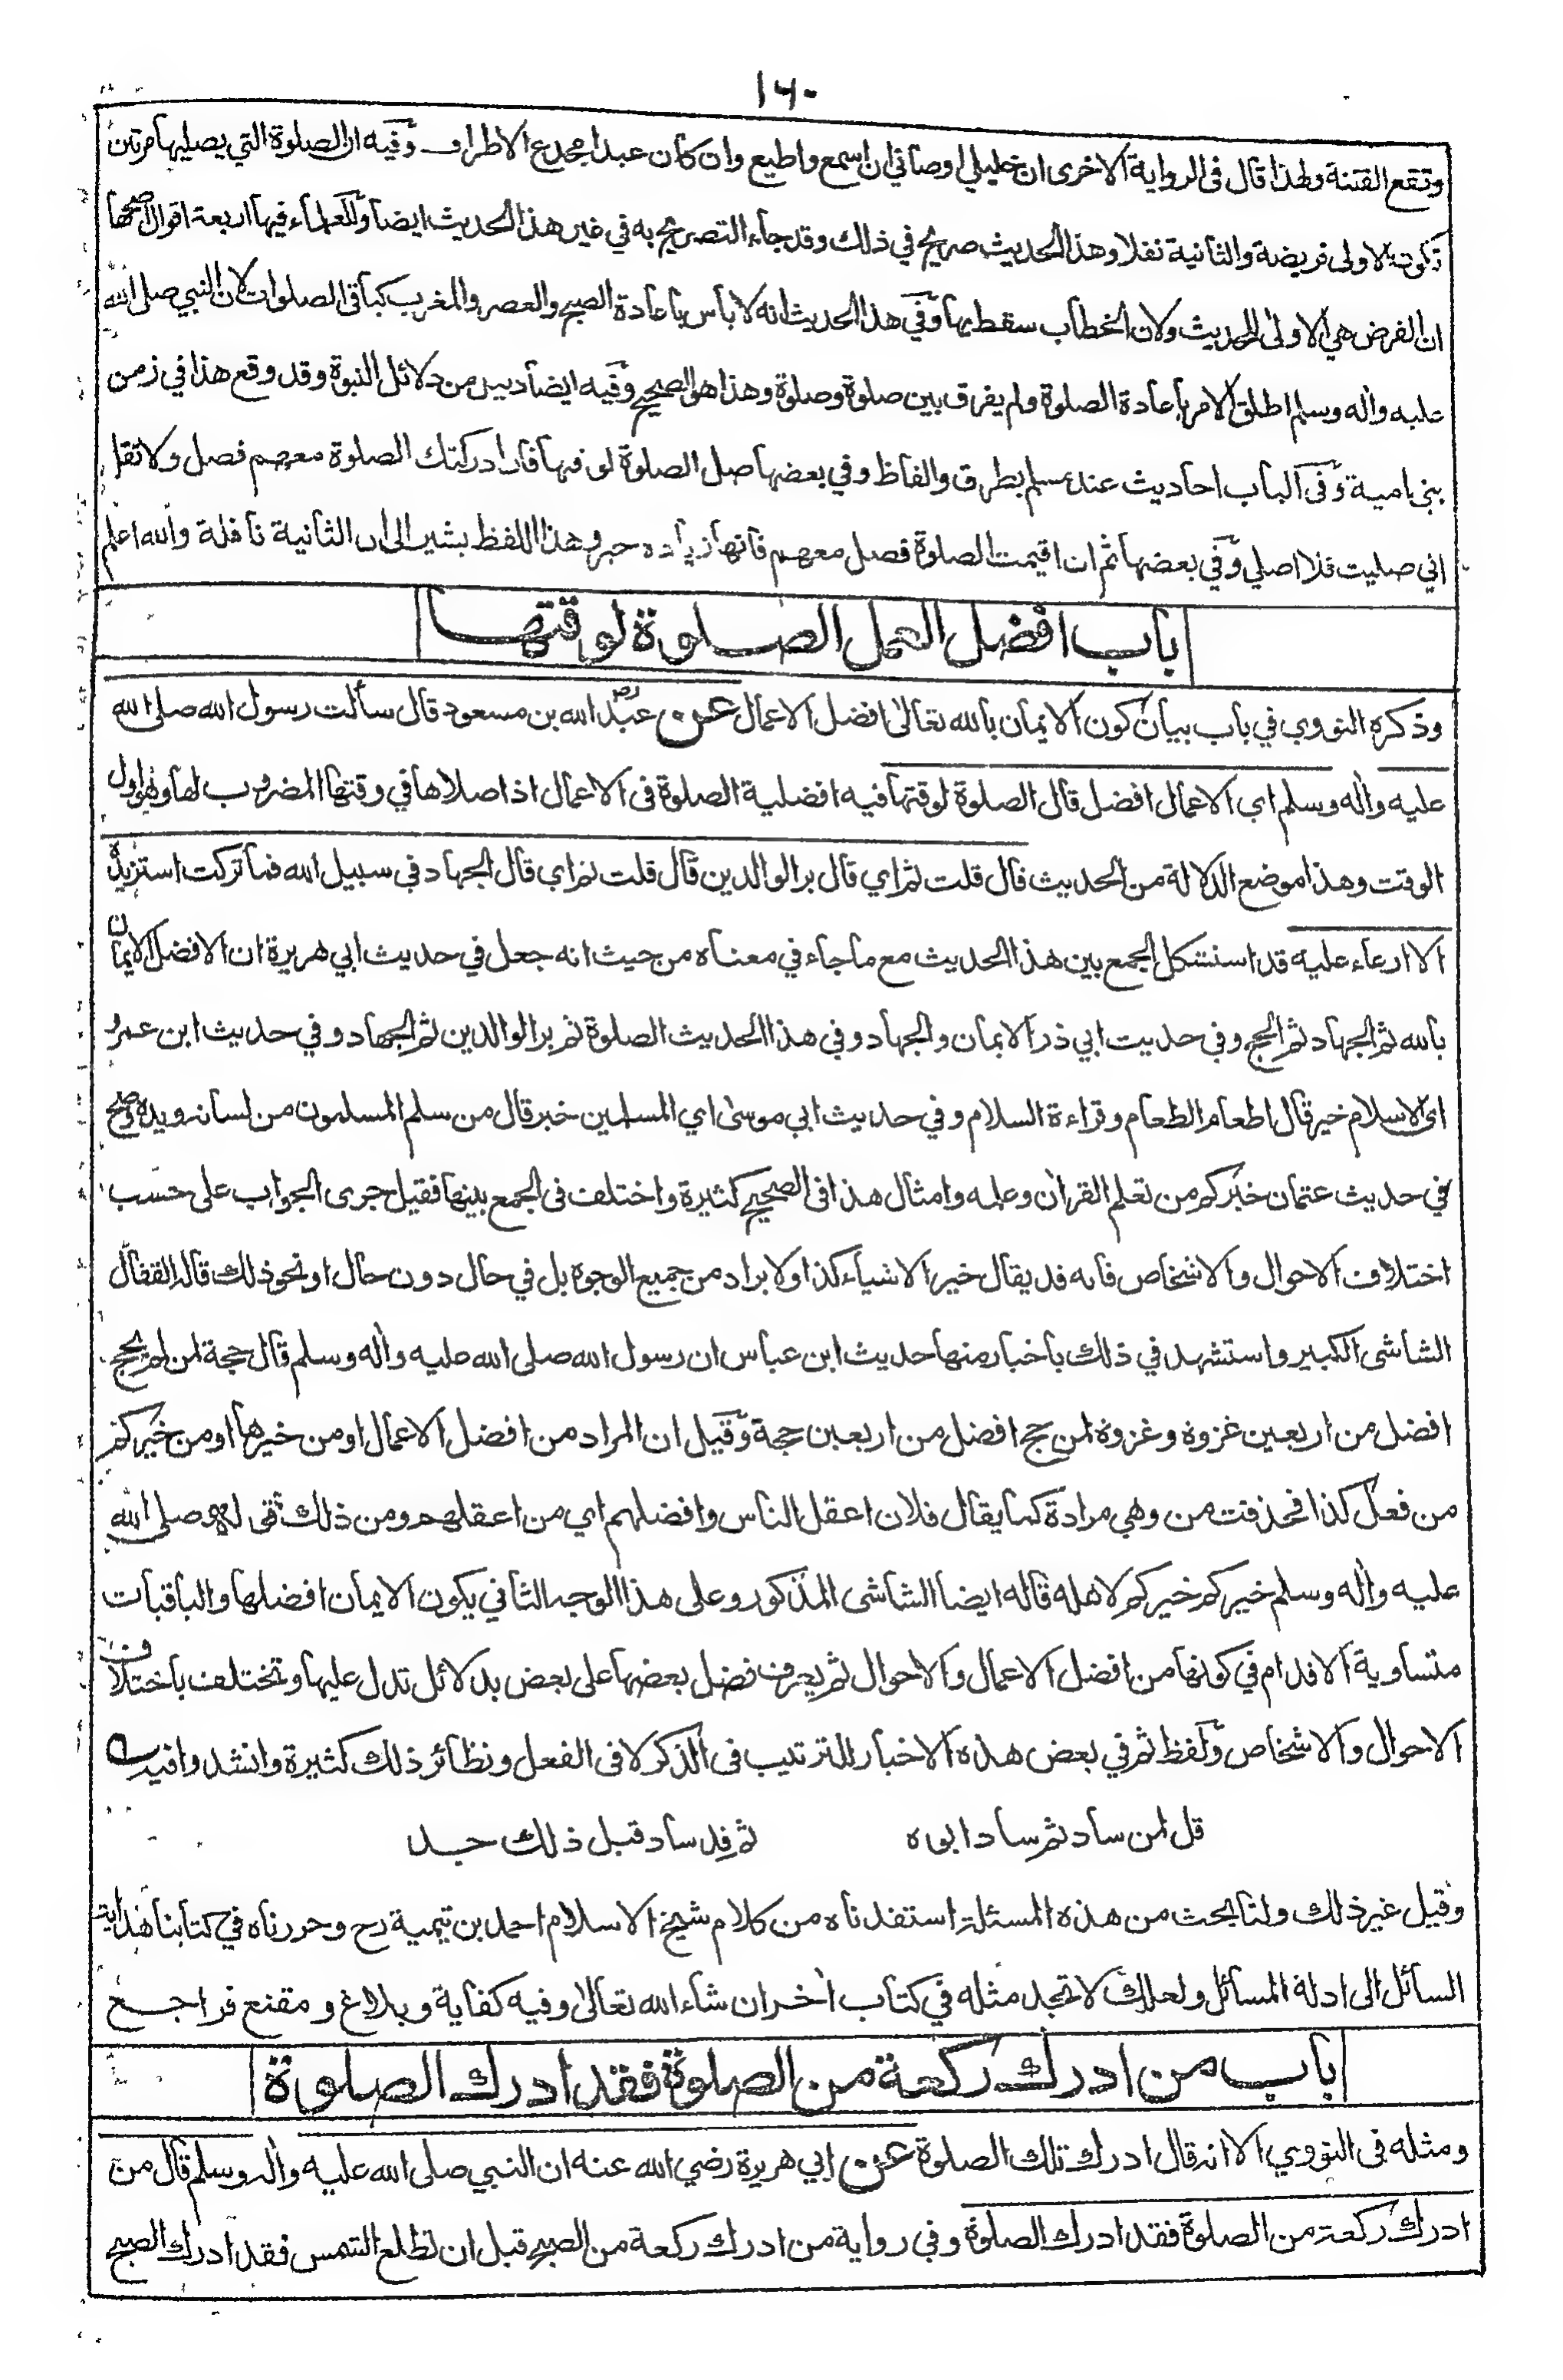 ١٦٠
وتقع الفتنة ولهذا قال فى الرواية الاخرى ان خليلي اوصاني ان اسمع واطيع وان كان عبدا مجدع الاطراف وفيه ان الصلوة التي يصليها مرتين
تكون الاولى فريضة والثانية نفلا وهذا الحديث صريح في ذلك وقد جاء التصريح به في غير هذا الحديث ايضا وللعلماء فيها اربعة اقوال اصحها
ان الفرض هي الاولى للحديث ولان الخطاب سقط بها وفي هذا الحديث انه لا باس باعادة الصبح والعصر والمغرب كباقى الصلوات لان النبي صلى الله
عليه واله وسلم اطلق الامر باعادة الصلوة ولم يفرق بين صلوة وصلوة وهذا هو الصحيح وفيه ايضا دليل من دلائل النبوة وقد وقع هذا في زمن
بني امية وفى الباب احاديث عند مسلم بطرق والفاظ وفي بعضها صل الصلوة لوقتها فان ادركتك الصلوة معهم فصل ولا تقل
اني صليت فلا اصلي وفي بعضها ثم ان اقيمت الصلوة فصل معهم فانها زيادة خير وهذا اللفظ يشير الى ان الثانية نافلة والله اعلم
باب افضل العمل الصلوة لوقتها
وذكره النووي في باب بيان كون الايمان بالله تعالى افضل الاعمال عن عبد الله بن مسعود رض قال سألت رسول الله صلى الله
عليه واله وسلم اي الاعمال افضل قال الصلوة لوقتها فيه افضلية الصلوة فى الاعمال اذا صلاها في وقتها المضروب لها وهو اول
الوقت وهذا موضع الدلالة من الحديث قال قلت ثم اي قال بر الوالدين قال قلت ثم اي قال الجهاد في سبيل الله فما تركت استزيده
الا ارعاء عليه قد استشكل الجمع بين هذا الحديث مع ما جاء في معناه من حيث انه جعل في حديث ابي هريرة ان الافضل الايمان
بالله ثم الجهاد ثم الحج وفي حديث ابي ذر الايمان والجهاد وفي هذا الحديث الصلوة ثم بر الوالدين ثم الجهاد وفي حديث ابن عمرو
اي الاسلام خير قال اطعام الطعام وقراءة السلام وفي حديث ابي موسى اي المسلمين خير قال من سلم المسلمون من لسانه ويده وصح
في حديث عثمان خيركم من تعلم القران وعلمه وامثال هذا فى الصحيح كثيرة واختلف فى الجمع بينها فقيل جرى الجواب على حسب
اختلاف الاحوال والاشخاص فانه قد يقال خير الاشياء كذا ولا يراد من جميع الوجوه بل في حال دون حال او نحو ذلك قاله القفال
الشاشى الكبير واستشهد في ذلك باخبار منها حديث ابن عباس ان رسول الله صلى الله عليه واله وسلم قال حجة لمن لم يحج
افضل من اربعين غزوة وغزوة لمن حج افضل من اربعين حجة وقيل ان المراد من افضل الاعمال او من خيرها او من خيركم
من فعل كذا فحذفت من وهي مرادة كما يقال فلان اعقل الناس وافضلهم اي من اعقلهم ومن ذلك قوله صلى الله
عليه واله وسلم خيركم خيركم لاهله قاله ايضا الشاشى المذكور وعلى هذا الوجه الثاني يكون الايمان افضلها والباقيات
متساوية الاقدام في كونها من افضل الاعمال والاحوال ثم يعرف فضل بعضها على بعض بدلائل تدل عليها وتختلف باختلاف
الاحوال والاشخاص ولفظ ثم في بعض هذه الاخبار للترتيب فى الذكر لا فى الفعل ونظائر ذلك كثيرة وانشد وافيه
قل لمن ساد ثم ساد ابوه ثم قد ساد قبل ذلك جده
وقيل غير ذلك ولنا بحث من هذه المسئلة استفدناه من كلام شيخ الاسلام احمد بن تيمية رح وحررناه في كتابنا هداية
السائل الى ادلة المسائل ولعلك لا تجد مثله في كتاب اخر ان شاء الله تعالى وفيه كفاية وبلاغ ومقنع فراجع
باب من ادرك ركعة من الصلوة فقد ادرك الصلوة
ومثله فى النووي الا انه قال ادرك تلك الصلوة عن ابي هريرة رضي الله عنه ان النبي صلى الله عليه واله وسلم قال من
ادرك ركعة من الصلوة فقد ادرك الصلوة وفي رواية من ادرك ركعة من الصبح قبل ان تطلع الشمس فقد ادرك الصبح